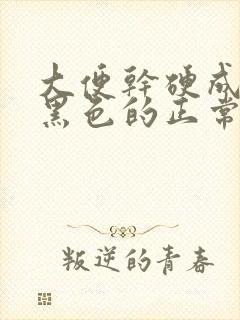 大便幹硬成
黑色的正常
叛逆的青春